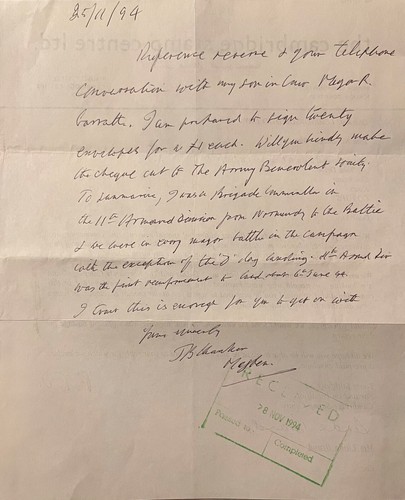 25/11/94
Reference reverse & your telephone
conversation with my son in law Major R.
Barratt. I am prepared to sign twenty
envelopes for £1 each. Will you kindly make
the cheque out to The Army Benevolent Society.
To summarise, I was a Brigade Commander in
the 11th Armoured Division from Normandy to the Baltic
& we were in every major battle in the campaign
with the exception of the 'D' day landing. 11th Armd Div
was the first reinforcement to land about 6th June 44.
I trust this is enough for you to get on with
Yours sincerely
RECEIVED
28 NOV 1994
Passed to:
Completed